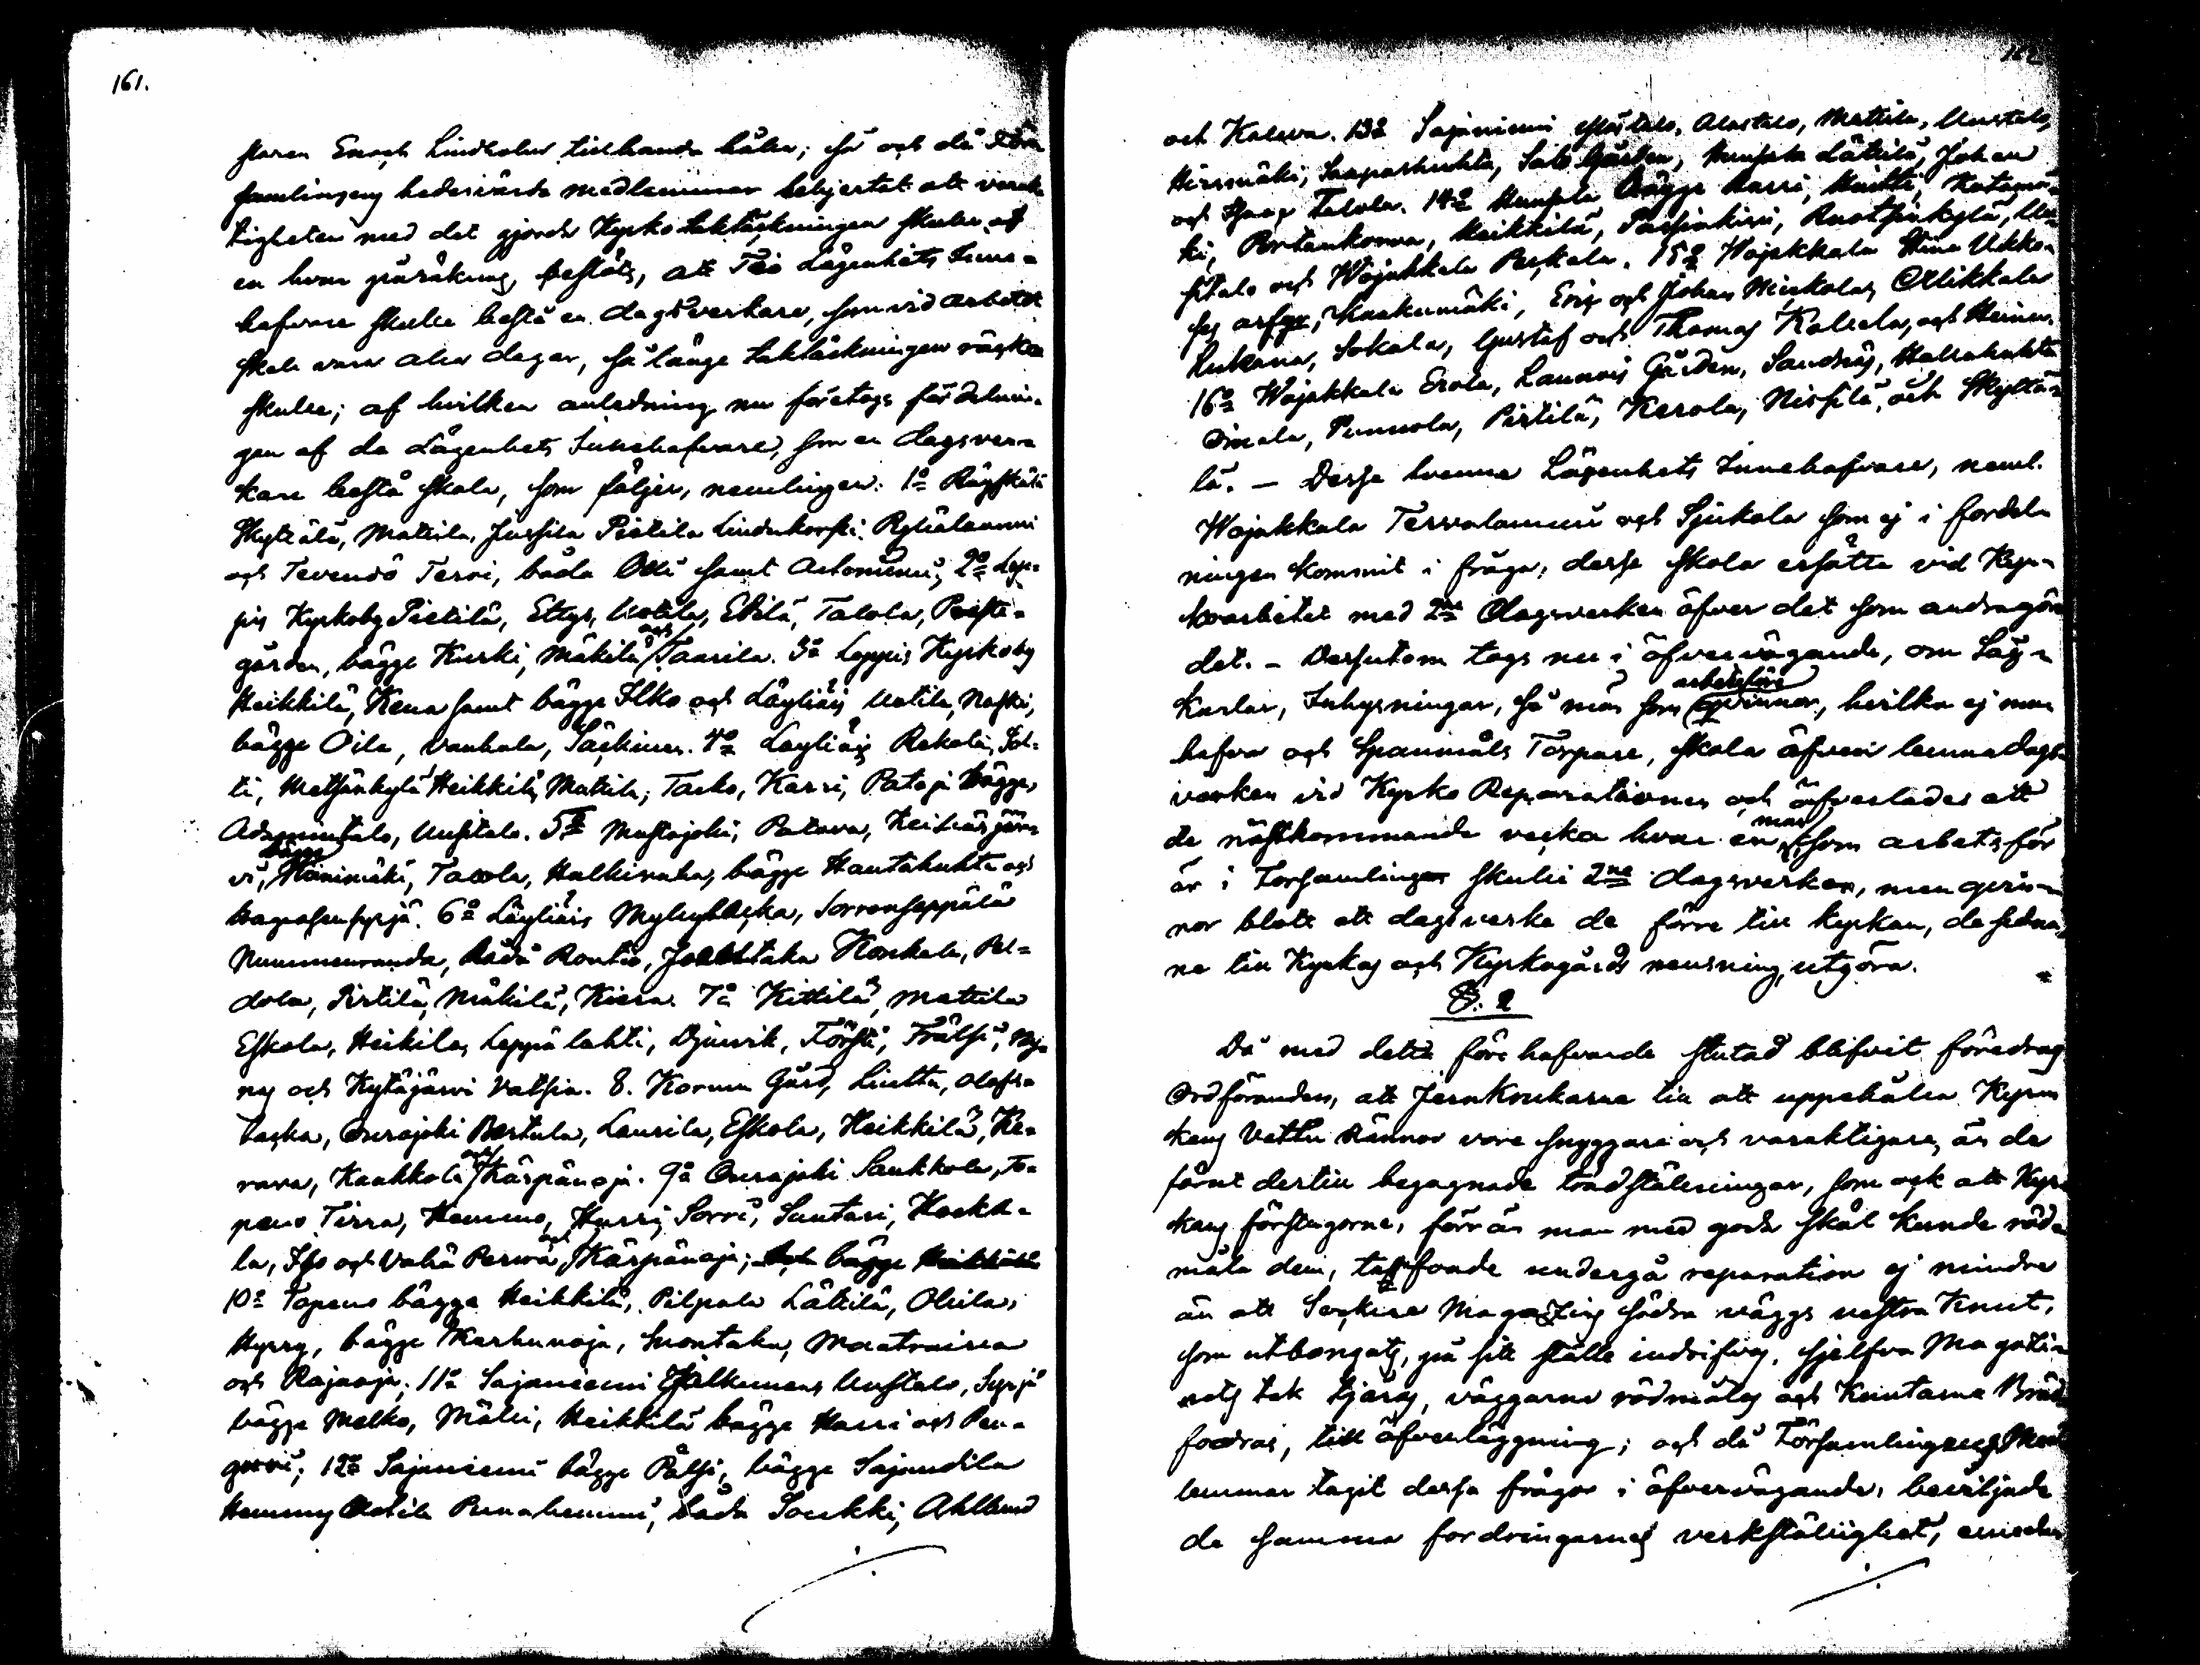 161.
staren Enoch Lindholm tillhanda håller; så och då För-
samlingens hedervärda medlemmar behjertat att varak-
tigheten med det gjorde Kyrko taktäckningen skulle af
en hvar påräknas, beslöts, att Tio Lägenhets Inne-
hafvare skulle bestå en dagsverkare, som vid arbetet
skall vara alla dagar, så länge taktäckningen räcka
skulle; af hvilken anledning nu företogs fördelnin-
gen af de Lägenhets Innehafvare, som en dagsver-
kare bestå skola, som följer, nemligen: 1o Räyskälä
Skyttälä, Mattila, Jussila Pietilä
och Tevendö Tervi, båda Olli samt 2o Lep-
pis Kyrkoby Pietilä, Uotila, Eskilä, Talola, Prest-
gården, bägge Kurski, Mäkilä och Taarila. 3o Leppis Kyrkoby
Heikkilä, Kena samt bägge Ilko och Läyliäis Uotila,
bägge Oila, Vanhala, Säckinen. 4o Läyliäis Rekola,
ti, Metsänkylä Heikkilä, Mattila, Tasko, Karri, Pataja bägge,
Uusitalo. 5o Mustajoki, Patava,
vi, Hänimäki, Talola, bägge Hautahuhta och
6o Läyliäis
Nummenranda, båda Rontio, Konkola, Pel-
dola, Pirtilä, Mäkilä, Kiera. 7o Kittilä, Mattila
Eskola, Heikilä, Leppälahti, Djurvik, Försti, Frälsi,
ny och Kytäjärvi Vatsia. 8. Korum Gård, Liutta,
backa, Ourajoki Bertula, Laurila, Eskola, Heikkilä, Ke-
rava, och Kärpänoja. 9o Ourajoki Saukkola, To-
peno Tirra, Hemmo, Hyrri, Sorri, Santari,
la, Iso och Vähä Perwa, och Kärpänoja; och bägge
10o Topeno bägge Heikkilä, Pilpala Lättilä, Ollila,
Hyrry, bägge Karhunoja, Suontaka,
och Rajaoja. 11o Sajaniemi Uusitalo,
bägge Melko, Mälli, Heikkilä bägge Harri och Pen-
12o Sajaniemi bägge Pålsi, bägge Sajandila
båda Soukki, Ahllund
162
och Kaleva. 13o Sajaniemi Alastalo, Mattila, Uustalo,
Hirsimäki, Saaparhuhta, Salo Gården, Hunsala Lättilä, Johan
och Talola. 14o Hunsala bägge Harri,
ki, Portankorva, Heikkilä, Ruotsinkylä, Uu-
sitalo och Wojakkala Perkola. 15o Wojakkala Stina Ukko-
las arfge, Kaakumäki, Eric och Johan Ollikkala
Sokala, Gustaf och Thomas
16o Wojakkala Erola, Launois Gården, Sandnäs,
Ojnala, Punnola, Pirtilä, Kerola, Nissilä, och Skyttä-
lä. — Dessa tvenne Lägenhets Innehafvare, neml.
Wojakkala Tervalammi och Sjukola som ej i fördel-
ningen kommit i fråga, dessa skola ersätta vid Kyr-
koarbetet med 2ne Dagsverken öfver det som andra gör
det. – Dessutom togs nu i öfvervägande, om Lös-
karlar, Inhysningar, så män som arbetsföra qvinnor, hvilka ej man
hafva och Spannmåls Torpare, skola äfven lemna dags-
verken vid Kyrko Reparationen och öfverlades att
de nästkommande vecka hvar en man, som arbetsför
är i Församlingen skulle 2ne dagsverken, men qvin-
nor blott ett dagsverke de förre till kyrkan, de sedna-
re till Kyrkas och Kyrkogårds rensning, utgöra.
§. 2
Då med detta förehafvande slutad blifvit föredrag
Ordföranden, att Jernkrokarne till att uppehålla Kyr-
kans Vatten Rännor vore snyggare och varaktigare, än de
förut dertill begagnade trädställningar, som ock att Kyr-
kans förstugorne, förr än man med godt skäl kunde röd-
måla dem, tarfvade undergå reparation ej mindre
än att Sockne Magazins södra väggs vestra Knut,
som utbongats, på sitt ställe indrifvas, sjelfva Magazi-
nets tak tjäras, väggarne rödmålas och Knutarna Bräd-
fodras, till öfverläggning; och då Församlingens Med-
lemmar tagit dessa frågor i öfvervägande, beviljade
de samma fordringarnes verkställighet, emedan